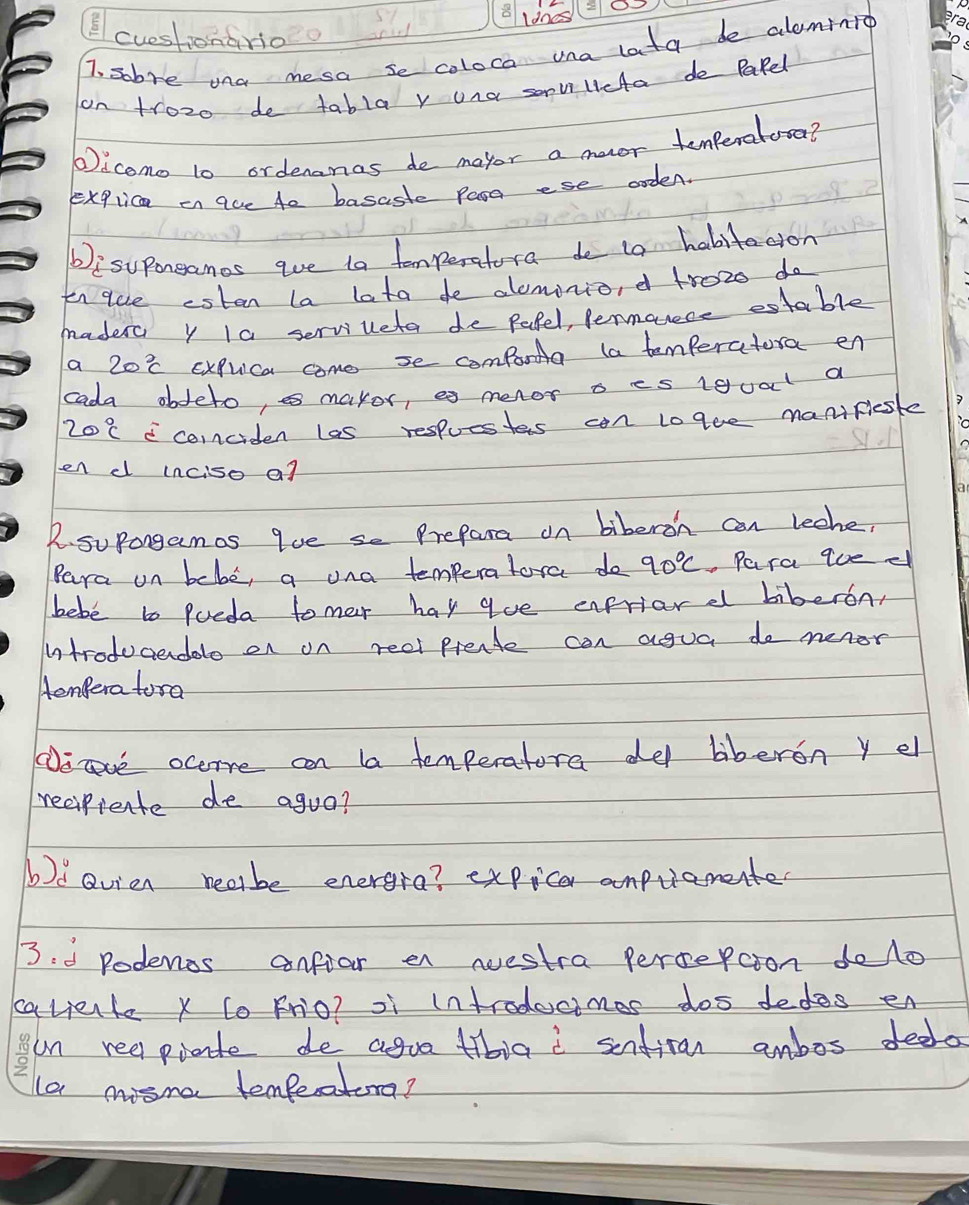 Tema
Día
lunes
Cuestionario
1. sobre una mesa se coloca una lata de aluminio
un trozo de tabla y una servilleta de Papel
a) ¿como lo ordenarias de mayor a menor temperatura?
Explica en que te basaste Para ese orden.
b) ¿supongamos que la temperatura de la habitacion
en que estan la lata de aluminio, el trozo de
madera y la servilleta de Papel, Permanece estable
a 20°c explica como se comporta la temperatura en
cada objeto, mayor, menor o es igual a
20°c ¿ coinciden las respuestas con lo que manifieste
en el inciso a?
2. supongamos que se Prepara un biberón con leche,
Para un bebé, a una temperatura de 90°c. Para que el
bebé lo Pueda tomar hay que enfriar el biberón,
introduciendolo en un recipiente con agua de menor
temperatura
a) ¿Qué ocurre con la temperatura del biberón y el
recipiente de agua?
b) ¿Quien recibe energia? explica ampliamente
3. ¿ Podemos confiar en nuestra Percepcion de lo
caliente y lo Frio? si introducimos dos dedos en
un recipiente de agua tibia ¿ sentiran ambos dedo
la misma temperatura?
Notas